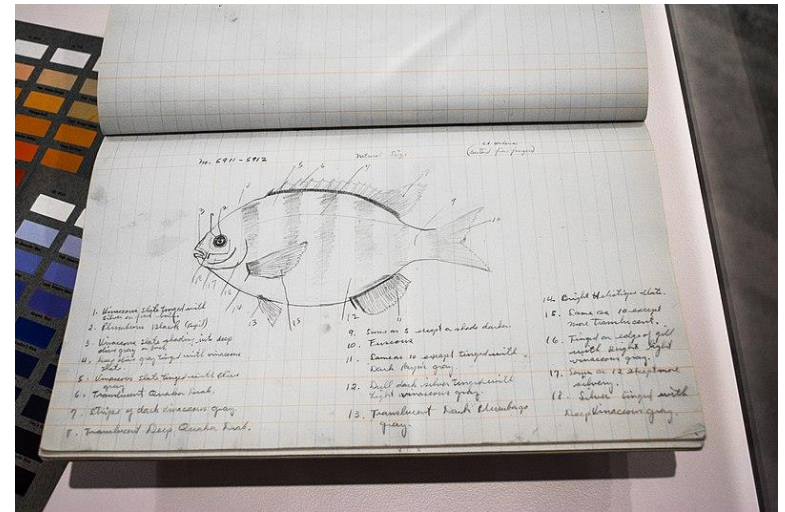 No. 5911-5912
Natural Size.
1. Vinaceous Slate tinged with
silver on
2. Plumbeous Black (pupil)
3. Vinaceous Slate shading into deep
olive gray on back
4. Deep olive gray tinged with vinaceous
slate.
5. Vinaceous Slate tinged with Olive
gray
6. Translucent Quaker Drab.
7. Stripes of dark vinaceous gray.
8. Translucent Deep Quaker Drab.
9. Same as 8 except a shade darker.
10. Fuscous
11. Same as 10 except tinged with
Dark Payne's gray
12. Dull dark silver tinged with
light vinaceous gray
13. Translucent Dark Plumbago
gray.
14. Bright Heliotrope slate.
15. Same as 10 except
more translucent.
16. Tinged on edge of gill
with bright light
vinaceous gray.
17. Same as 12 except more
silvery.
18. Silver tinged with
Deep Vinaceous gray.